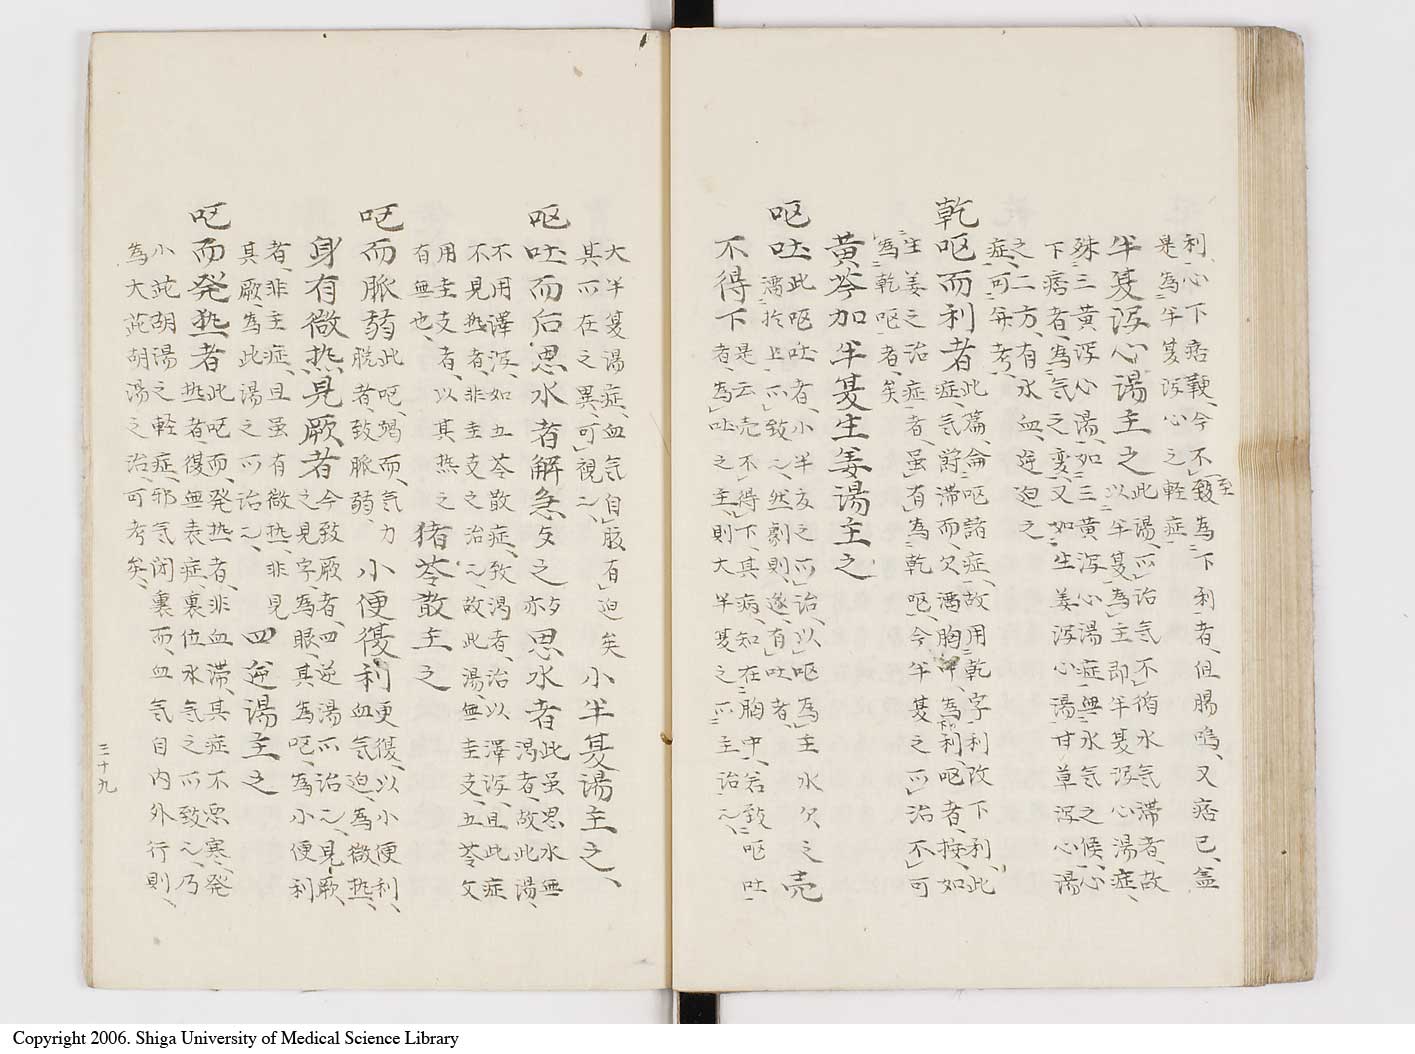 利、心下痞鞕、今不致為下利者、但腸鳴、又痞已、盖
至
是為半夏瀉心之軽症
半夏瀉心湯主之此湯、所治気不循水気滞者、故
以半夏為主、即半夏瀉心湯症、
殊三黄瀉心湯、如三黄瀉心湯症無水気之候、心
下痞者、為気之変、又如生姜瀉心湯甘草瀉心湯
之二方、有水血、逆迫之
症、可并考、
乾呕而利者此篇、侖呕諸症、故用乾字、利改下利、此
症、気欝滞而、欠満胸中、為利、呕者、按、如
生姜之治症者、虽有為乾呕、今半夏之所治不可
為乾呕者、矣
黄芩加半夏生姜湯主之
呕吐此呕吐者、小半夏之所治、以呕為主水欠之壳
満於上、所致之、然劇則、遂有吐者、
不得下是云壳不得下、其病、知在胸中、若致呕吐
者、為吐之主、則大半夏之所主治之、
大半夏湯症、血気自胘有迫矣
其所在之異、可視之、
小半夏湯主之、
呕吐而后思水者解急攵之
亦思水者此虽思水無
渇者、故此湯、
不用澤瀉、如五苓散症、致渇者、治以澤瀉、且此症
不見热者、非圭支之治之、故此湯、無圭支、五苓攵
用圭支、者、以其热之
有無也、
猪苓散主之
呕而脈弱此呕、竭而、気力
脱者、致脈弱、
小便復利更復、以小便利、
血気迫、為微热、
身有微热見厥者今致厥者、四逆湯所治之、見厥、
之見字、為眼、其為呕、為小便利
者、非主症、且虽有微热、非見
其厥、為此湯之所治之、
四逆湯主之
呕而発热者此呕而、発热者、非血滞、其症不悪寒、発
热者、復無表症、裏位水気之所致之、乃
小茈胡湯之軽症、邪気閉裏而、血気自内外行則、
為大茈胡湯之治、可考矣、
三十九
Copyright 2006. Shiga University of Medical Science Library